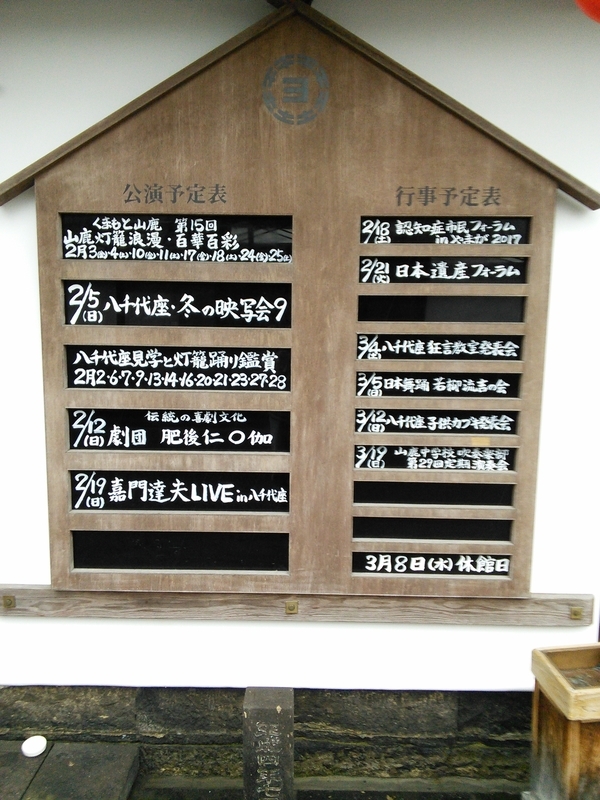 ヨ
公演予定表
くまもと山鹿 第15回
山鹿灯籠浪漫・百華百彩
2月3(金)・4(土)・10(金)・11(土)・17(金)・18(土)・24(金)・25(土)
2/5(日) 八千代座・冬の映写会9
八千代座見学と灯籠踊り鑑賞
2月2・6・7・9・13・14・16・20・21・23・27・28
伝統の喜劇文化
2/12(日) 劇団 肥後仁〇伽
2/19(日) 嘉門達夫LIVE in 八千代座
行事予定表
2/18(土) 認知症市民フォーラム
in やまが 2017
2/21(火) 日本遺産フォーラム
3/4(土) 八千代座 狂言教室発表会
3/5(日) 日本舞踊 若柳流吉の会
3/12(日) 八千代座 子供カブキ発表会
3/19(日) 山鹿中学校 吹奏楽部
第29回定期演奏会
3月8日(水) 休館日